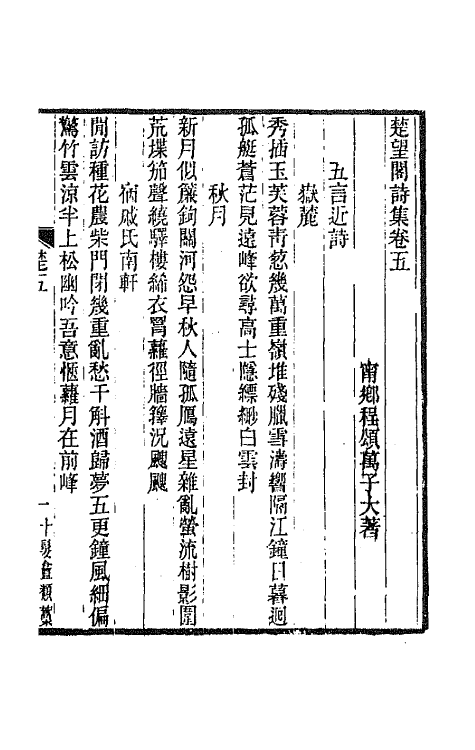 楚望閣詩集卷五
甯鄉程頌萬子大著
五言近詩
嶽麓
秀插玉芙蓉青葱幾萬重嶺堆殘臘雪濤響隔江鐘日暮迴
孤艇蒼茫見遠峰欲尋高士隱縹緲白雲封
秋月
新月似簾鉤關河怨早秋人隨孤鴈遠星雜亂螢流樹影圍
荒堞笳聲繞驛樓絲衣罥蘿徑牆籜況颼颼
宿戚氏南軒
閒訪種花農柴門閉幾重亂愁千斛酒歸夢五更鐘風細偏
驚竹雲涼半上松幽吟吾意愜蘿月在前峰
楚五
一
十髮盦類稾